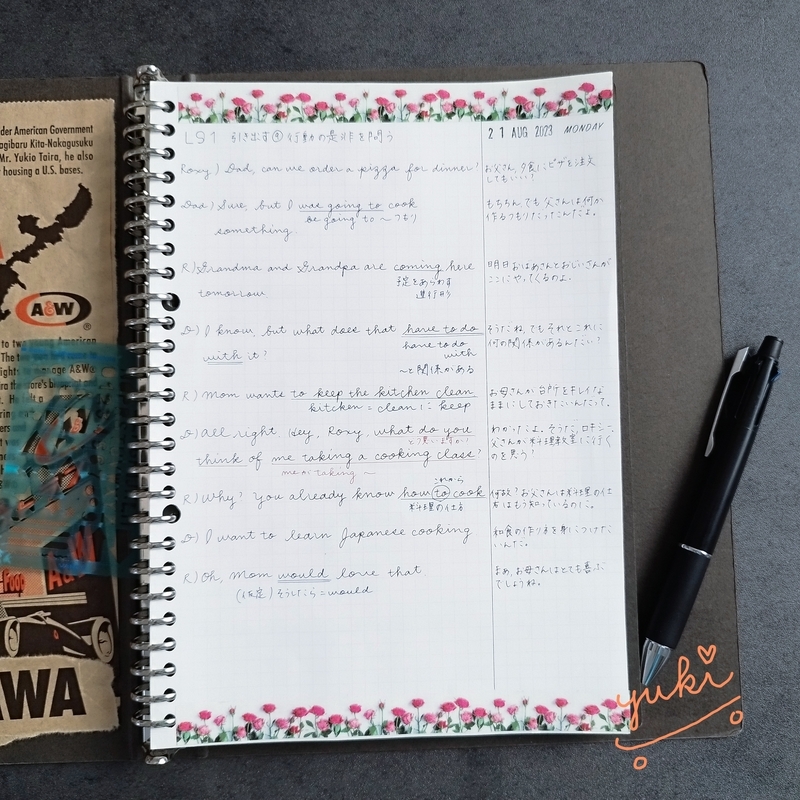 der American Government
agibaru Kita-Nakagusuku
Mr. Yukio Taira, he also
housing a U.S. bases.
A&W
®
to two young American
A&W
AWA
LS1 引き出す④ 行動の是非を問う
21 AUG 2023 MONDAY
Roxy) Dad, can we order a pizza for dinner?
お父さん、夕食にピザを注文
してもいい?
Dad) Sure, but I was going to cook
be going to ~つもり
something.
もちろん、でも父さんは何か
作るつもりだったんだよ。
R) Grandma and Grandpa are coming here
予定をあらわす
進行形
tomorrow.
明日おばあさんとおじいさんが
ここにやってくるのよ。
D) I know, but what does that have to do
have to do
with it?
with
~と関係がある
そうだね、でもそれとこれに
何の関係があるんだい?
R) Mom wants to keep the kitchen clean
kitchen = clean に keep
お母さんが台所をキレイな
ままにしておきたいんだって。
D) All right. Hey, Roxy, what do you
どう思いますか?
think of me taking a cooking class?
me が taking ~
わかったよ。そうだ、ロキシー、
父さんが料理教室に行く
のを思う?
R) Why? You already know how to cook
これから
料理の仕方
何故?お父さんは料理の仕
方はもう知っているのに。
D) I want to learn Japanese cooking
和食の作り方を身につけた
いんだ。
R) Oh, Mom would love that.
(仮定) そうしたら = would
まあ、お母さんはとても喜ぶ
でしょうね。
yuki